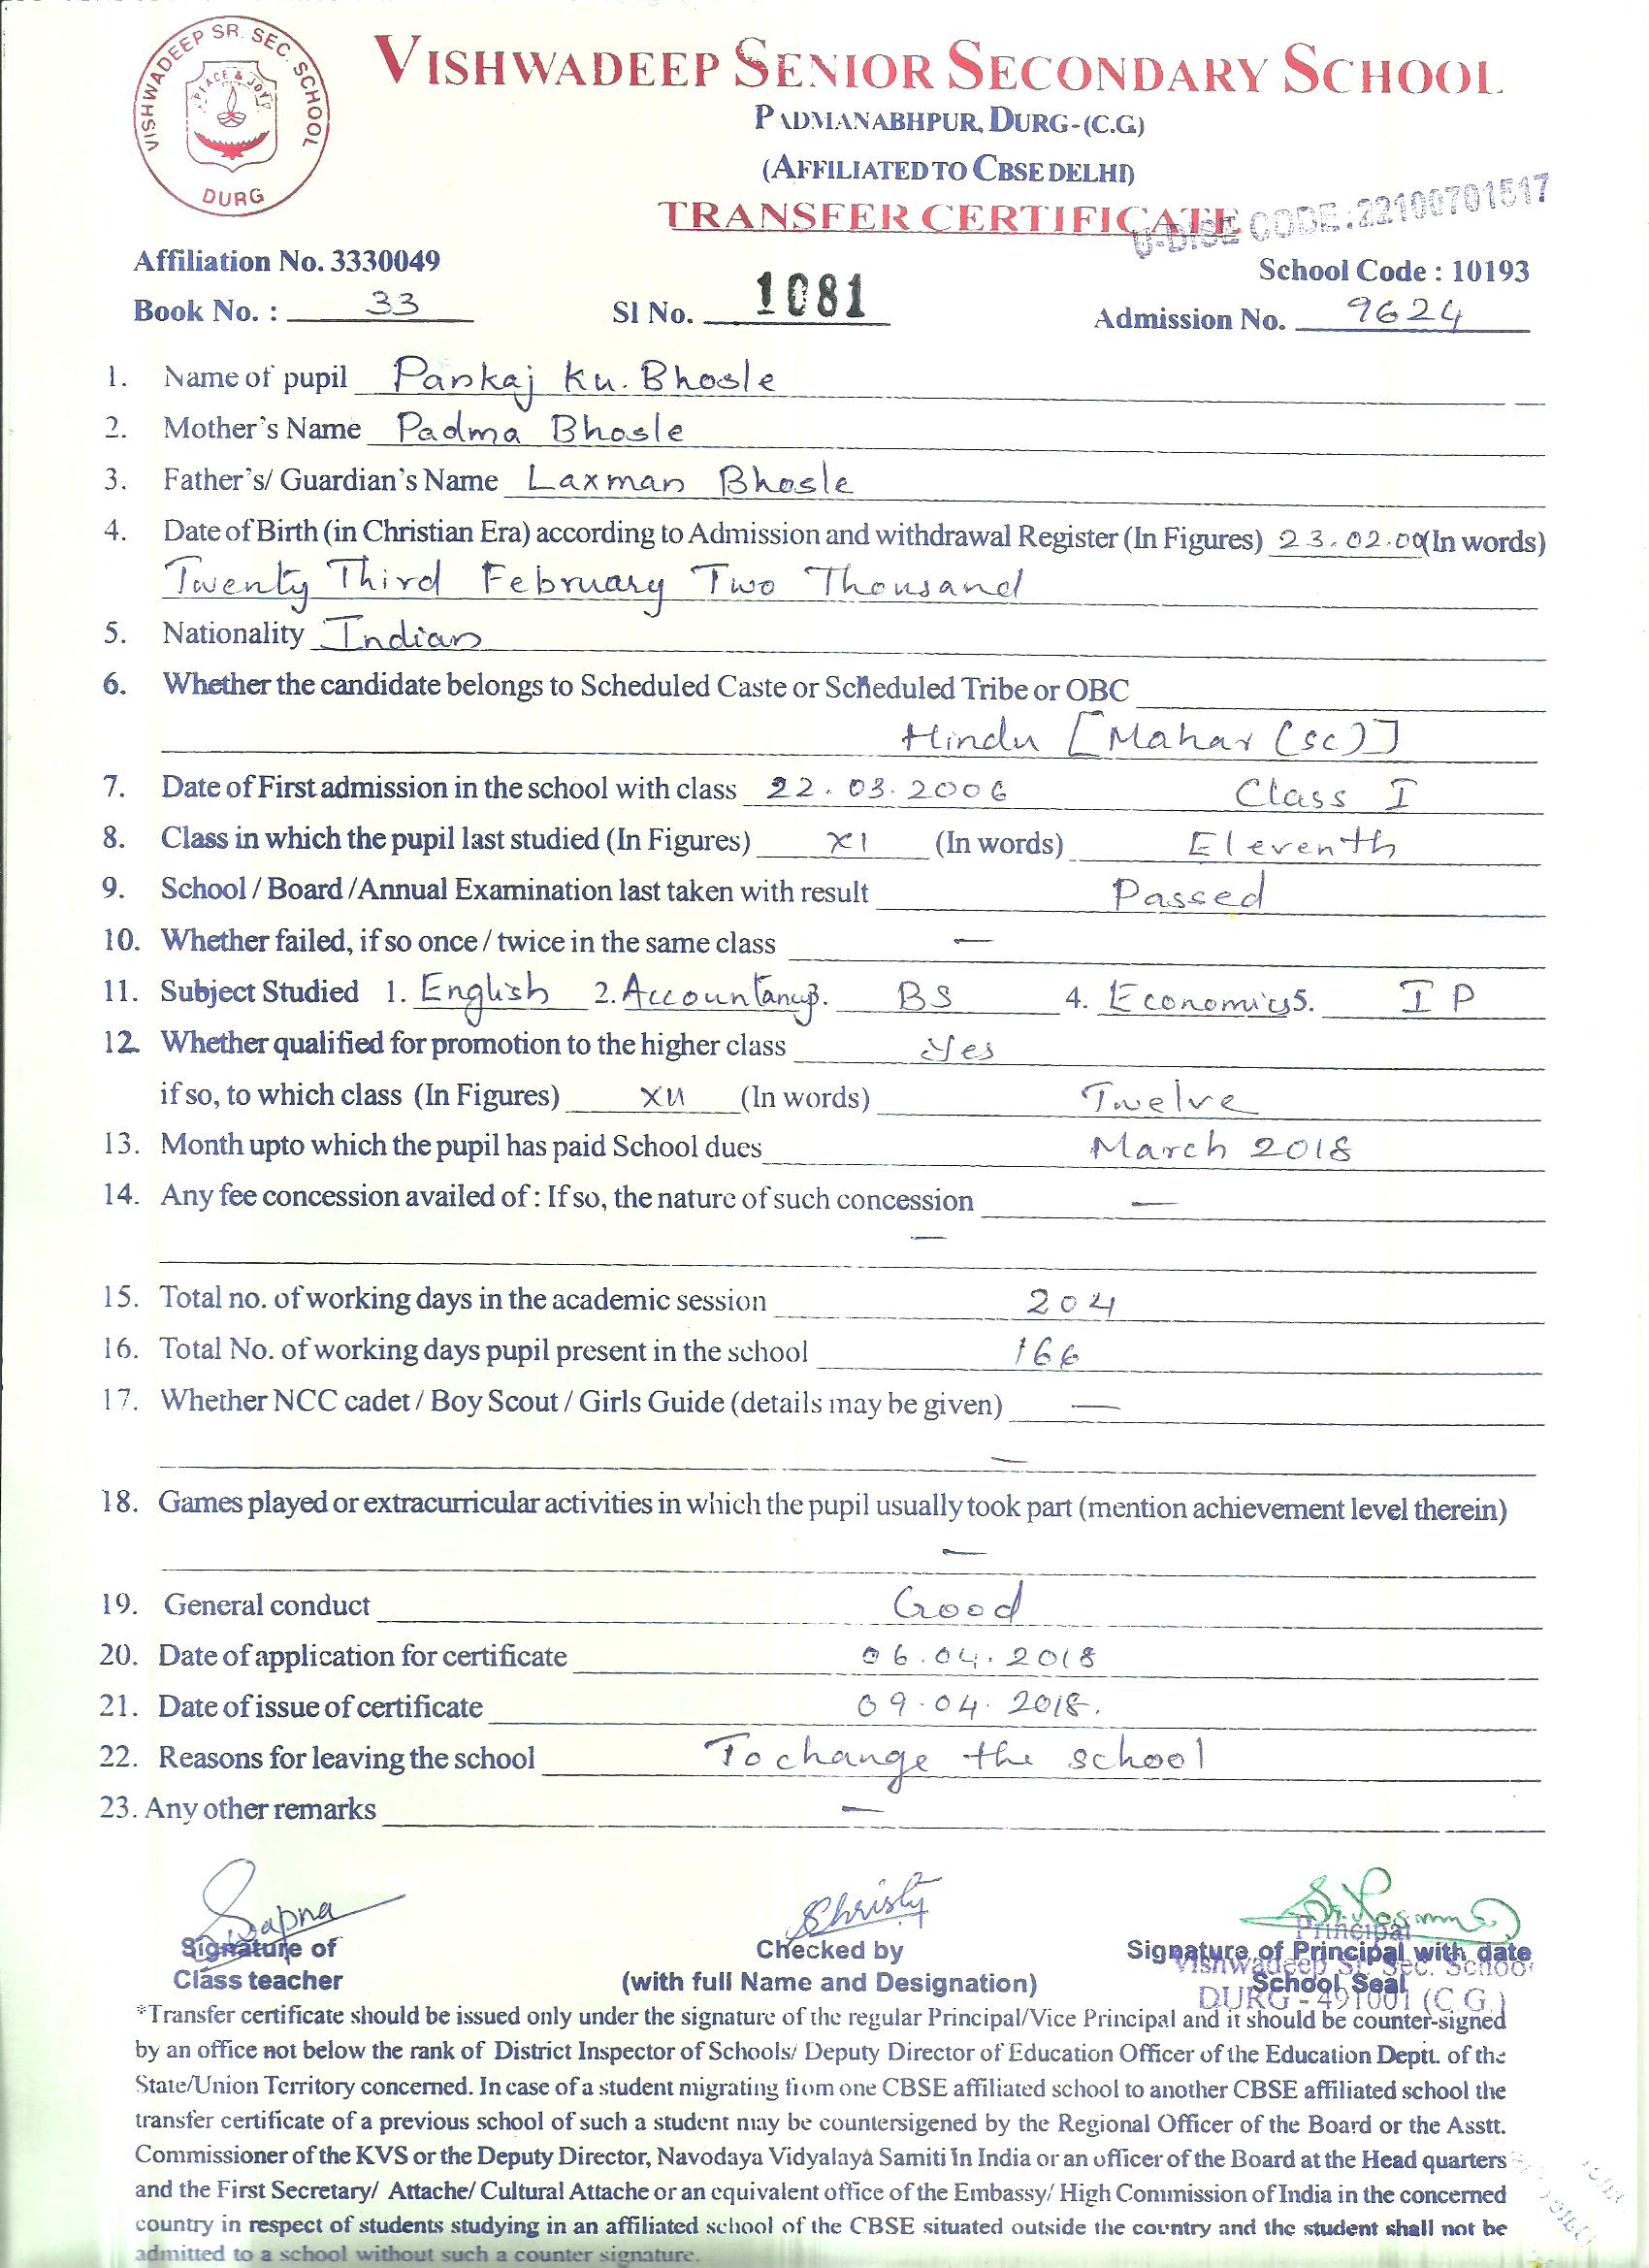 VISHWADEEP SR. SEC. SCHOOL
PEACE & JOY
DURG
VISHWADEEP SENIOR SECONDARY SCHOOL
PADMANABHPUR, DURG-(C.G)
(AFFILIATED TO CBSE DELHI)
TRANSFER CERTIFICATE
U-DISE CODE:22100701517
Affiliation No. 3330049
School Code : 10193
Book No. : 33 Sl No. 1081 Admission No. 9624
1. Name of pupil Pankaj Ku. Bhosle
2. Mother's Name Padma Bhosle
3. Father's/ Guardian's Name Laxman Bhosle
4. Date of Birth (in Christian Era) according to Admission and withdrawal Register (In Figures) 23.02.00 (In words)
Twenty Third February Two Thousand
5. Nationality Indian
6. Whether the candidate belongs to Scheduled Caste or Scheduled Tribe or OBC
Hindu [Mahar (SC)]
7. Date of First admission in the school with class 22.03.2006 Class I
8. Class in which the pupil last studied (In Figures) XI (In words) Eleventh
9. School / Board /Annual Examination last taken with result Passed
10. Whether failed, if so once / twice in the same class —
11. Subject Studied 1. English 2. Accountancy 3. BS 4. Economics 5. IP
12. Whether qualified for promotion to the higher class Yes
if so, to which class (In Figures) XII (In words) Twelve
13. Month upto which the pupil has paid School dues March 2018
14. Any fee concession availed of : If so, the nature of such concession —
—
15. Total no. of working days in the academic session 204
16. Total No. of working days pupil present in the school 166
17. Whether NCC cadet / Boy Scout / Girls Guide (details may be given) —
—
18. Games played or extracurricular activities in which the pupil usually took part (mention achievement level therein)
—
19. General conduct Good
20. Date of application for certificate 06.04.2018
21. Date of issue of certificate 09.04.2018.
22. Reasons for leaving the school To change the school
23. Any other remarks —
Sapna Christy
Principal
Signature of Checked by Signature of Principal with date
Vishwadeep Sr. Sec. School
Class teacher (with full Name and Designation) School Seal
DURG - 491001 (C.G.)
*Transfer certificate should be issued only under the signature of the regular Principal/Vice Principal and it should be counter-signed
by an office not below the rank of District Inspector of Schools/ Deputy Director of Education Officer of the Education Deptt. of the
State/Union Territory concerned. In case of a student migrating from one CBSE affiliated school to another CBSE affiliated school the
transfer certificate of a previous school of such a student may be countersigened by the Regional Officer of the Board or the Asstt.
Commissioner of the KVS or the Deputy Director, Navodaya Vidyalaya Samiti in India or an officer of the Board at the Head quarters
and the First Secretary/ Attache/ Cultural Attache or an equivalent office of the Embassy/ High Commission of India in the concerned
country in respect of students studying in an affiliated school of the CBSE situated outside the country and the student shall not be
admitted to a school without such a counter signature.